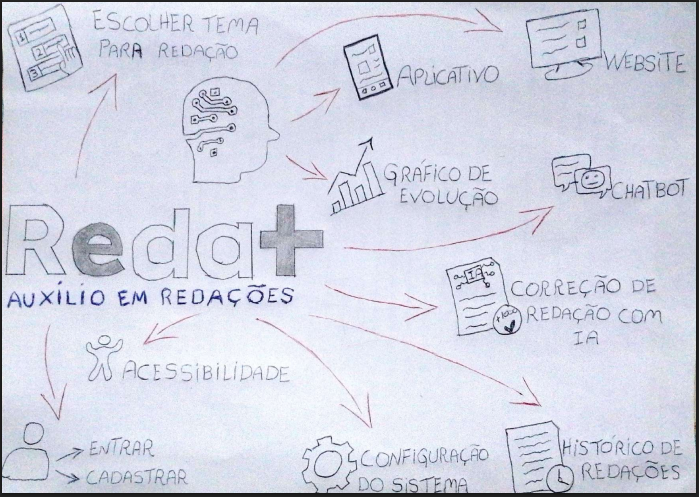 ESCOLHER TEMA
PARA REDAÇÃO
1
2
3
APLICATIVO
WEBSITE
GRÁFICO DE
EVOLUÇÃO
CHATBOT
Reda+
AUXÍLIO EM REDAÇÕES
IA
CORREÇÃO DE
REDAÇÃO COM
IA
ACESSIBILIDADE
ENTRAR
CADASTRAR
CONFIGURAÇÃO
DO SISTEMA
HISTÓRICO DE
REDAÇÕES